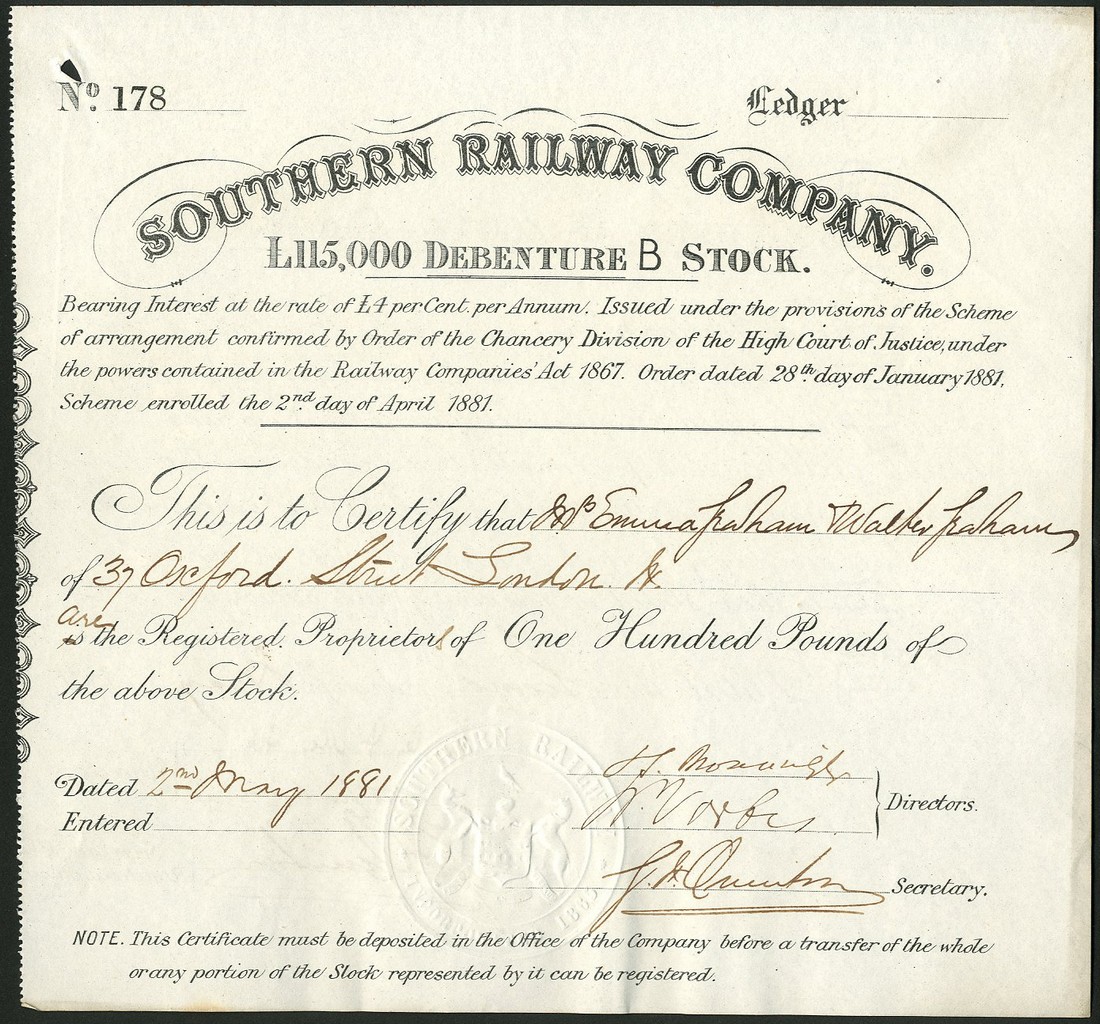 No. 178
Ledger
SOUTHERN RAILWAY COMPANY.
£115,000 DEBENTURE B STOCK.
Bearing Interest at the rate of £4 per Cent. per Annum. Issued under the provisions of the Scheme
of arrangement confirmed by Order of the Chancery Division of the High Court of Justice, under
the powers contained in the Railway Companies' Act 1867. Order dated 28th. day of January 1881,
Scheme enrolled the 2nd. day of April 1881.
This is to Certify that Mrs Emma Graham & Walter Graham
of 37 Oxford. Street London. W.
are
is the Registered Proprietors of One Hundred Pounds of
the above Stock.
SOUTHERN RAILWAY
Dated 2nd May 1881
Directors.
Entered
Secretary.
NOTE. This Certificate must be deposited in the Office of the Company before a transfer of the whole
or any portion of the Stock represented by it can be registered.